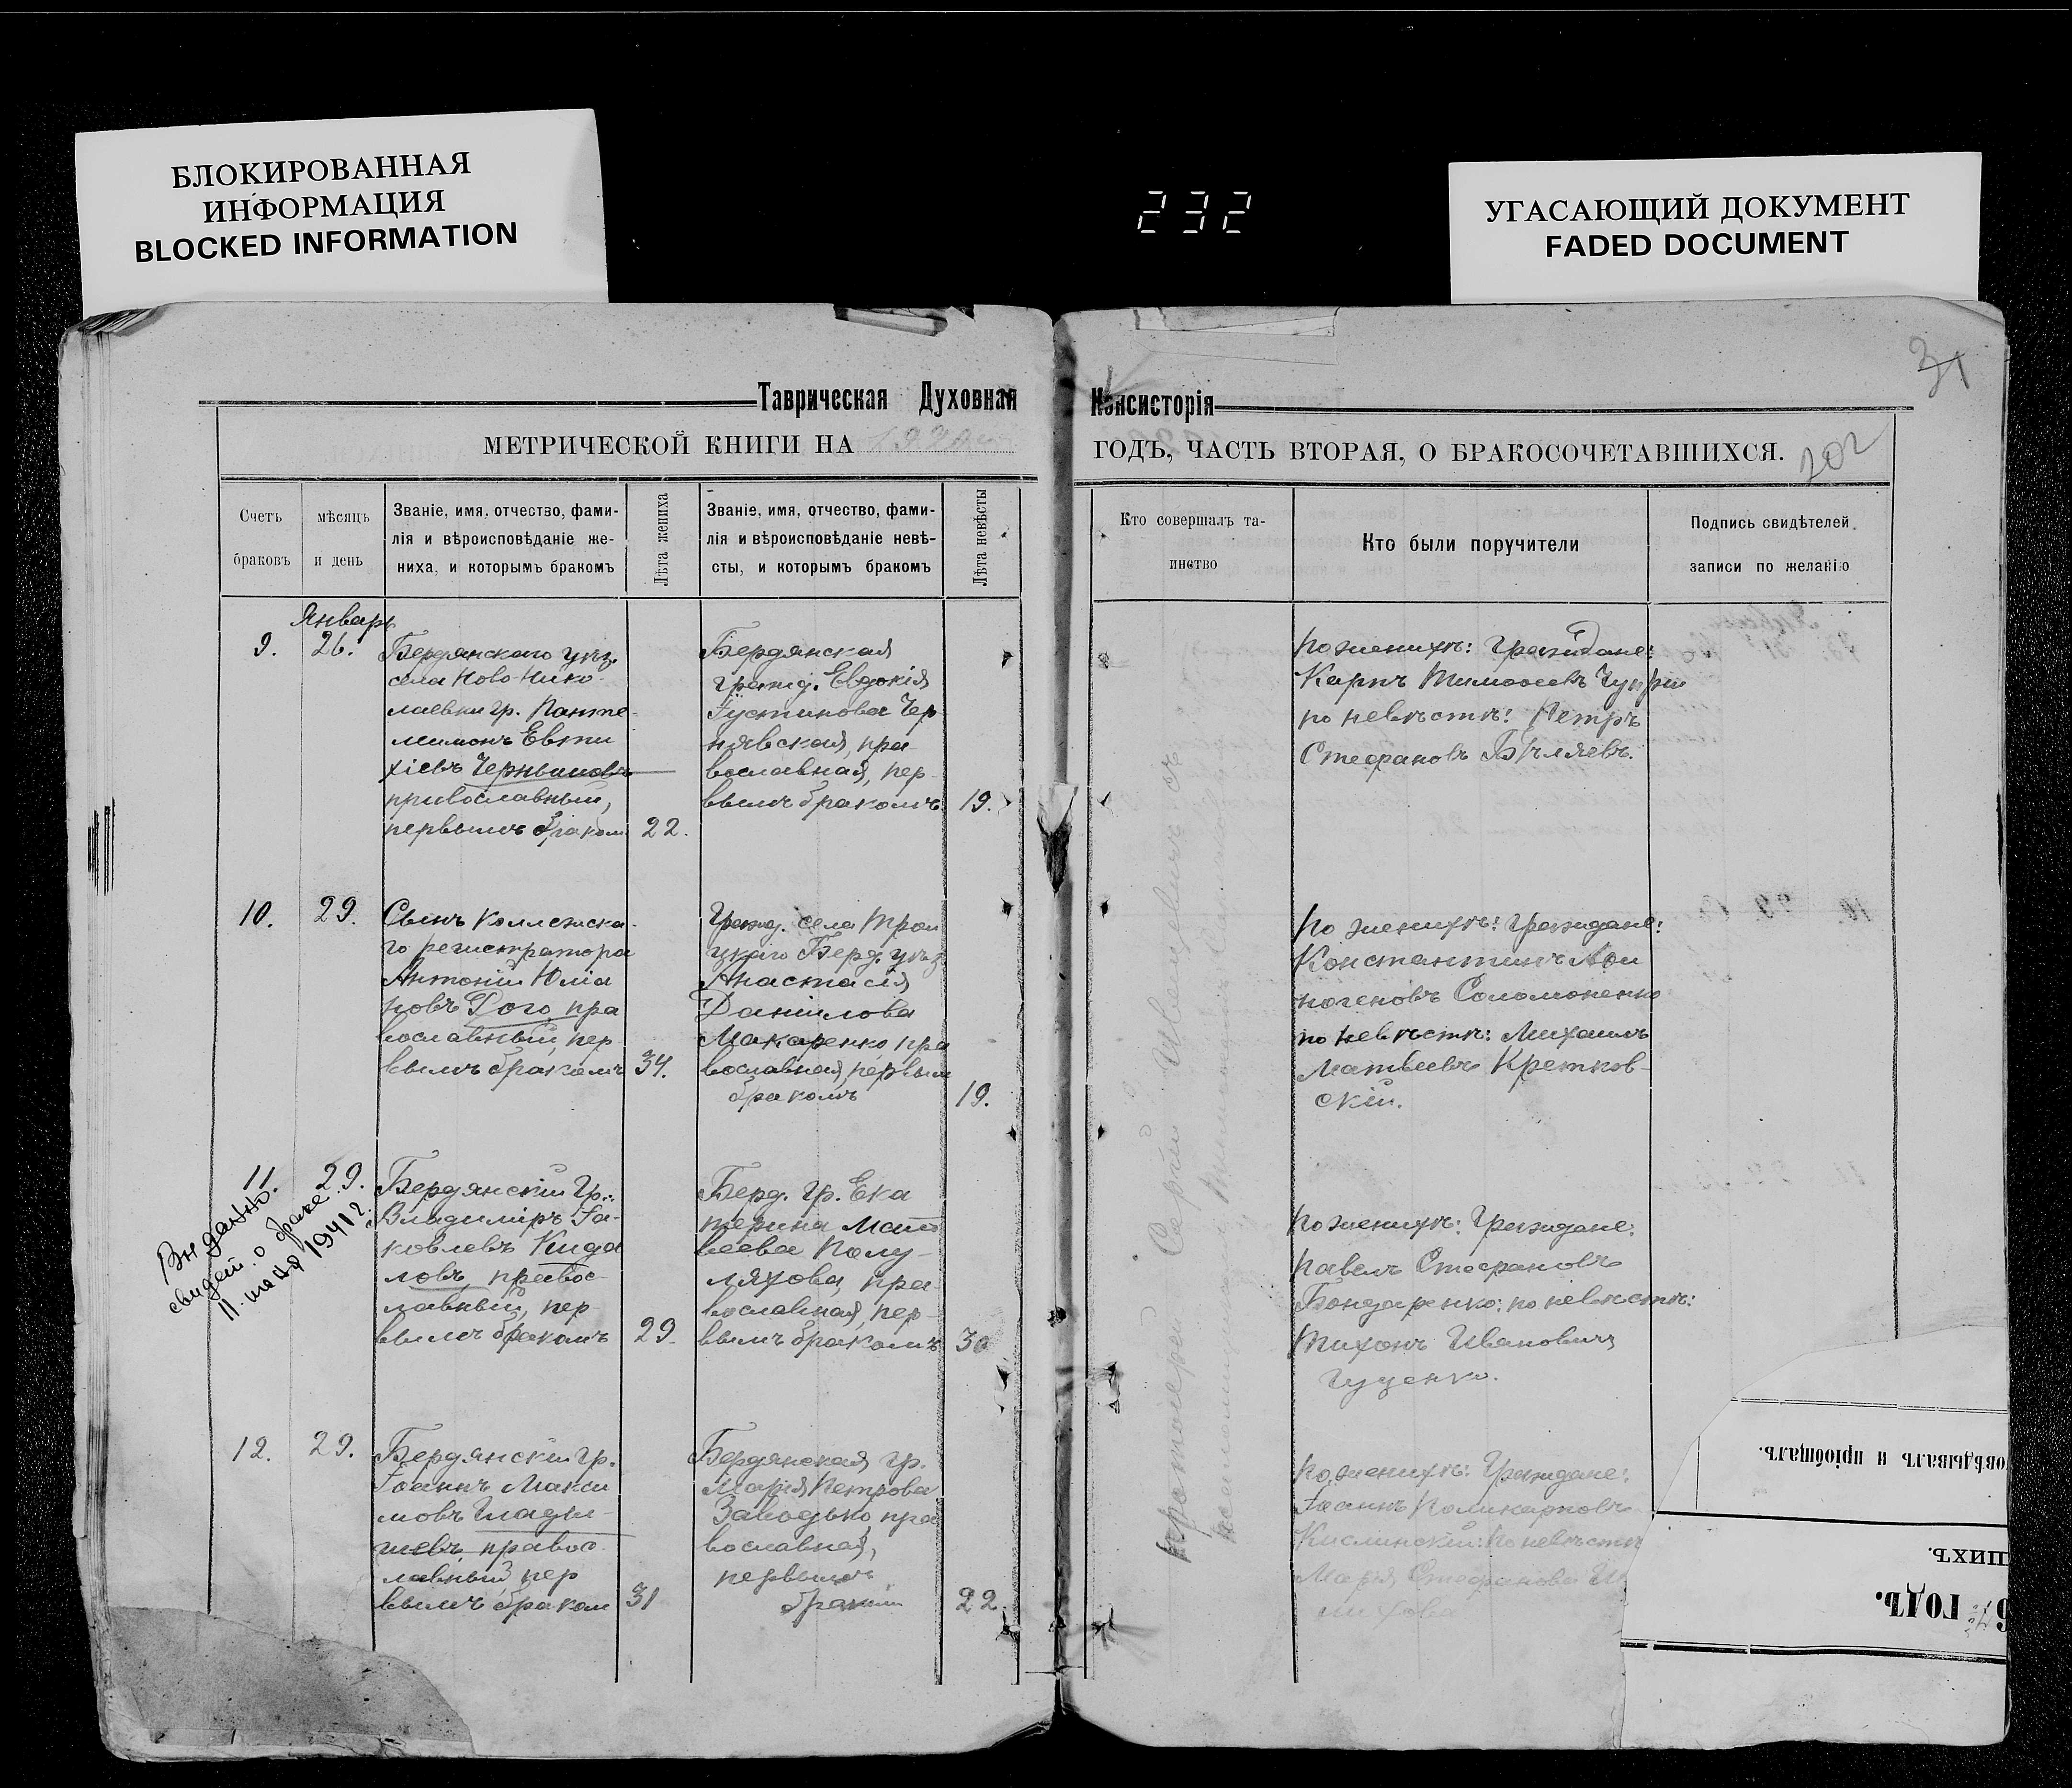 БЛОКИРОВАННАЯ
ИНФОРМАЦИЯ
BLOCKED INFORMATION
232
УГАСАЮЩИЙ ДОКУМЕНТ
FADED DOCUMENT
31
Таврическая Духовная Консисторія
МЕТРИЧЕСКОЙ КНИГИ НА
ГОДЪ, ЧАСТЬ ВТОРАЯ, О БРАКОСОЧЕТАВШИХСЯ.
202
Счетъ
браковъ
мѣсяцъ
и день
Званіе, имя, отчество, фами-
лія и вѣроисповѣданіе же-
ниха, и которымъ бракомъ
Лѣта жениха
Званіе, имя, отчество, фами-
лія и вѣроисповѣданіе невѣ-
сты, и которымъ бракомъ
Лѣта невѣсты
Кто совершалъ та-
инство
Кто были поручители
Подпись свидѣтелей
записи по желанію
Январь
9.
26.
Бердянскаго уѣз.
села Ново-Нико-
лаевки гр. Панте-
леимонъ Евти
хіевъ
православный,
первымъ браком
22.
Бердянская
гражд. Евдокія
Іустинова Чер
нявская, пра-
вославная, пер-
вымъ бракомъ
19.
по женихѣ: Граждане:
Карпъ
по невѣстѣ: Петръ
Стефановъ Бѣляевъ.
10.
29.
Сынъ Коллежска-
го регистратора
Антоній Юліа
новъ Гого, пра
вославный, пер-
вымъ бракомъ
34.
Гражд. села Трои
цкаго Берд. уѣз.
Анастасія
Даніилова
Макаренко, пра
вославная, первым
бракомъ
19.
по женихѣ: Граждане:
Константинъ Аѳи
ногеновъ Соломоненко
по невѣстѣ: Михаилъ
Матвеевъ Кретков-
скій.
11.
29.
Выдано
свидет. о браке
11. мая 1941 г.
Бердянскій гр.
Владиміръ Іа-
ковлевъ Кида
ловъ, правос-
лавный, пер-
вымъ бракомъ
29.
Берд. гр. Ека
терина Мат
веева Полу-
ляхова, пра-
вославная, пер-
вымъ бракомъ
30
по женихѣ: Граждане:
Павелъ Стефановъ
Бондаренко: по невѣстѣ:
Тихонъ Ивановичъ
Гуценко.
12.
29.
Бердянскій гр.
Іоаннъ Макси
мовъ Глады-
шевъ, правос-
лавный, пер
вымъ браком
31
Бердянская гр.
Марія Петрова
Заводько, пра
вославная,
первымъ
22.
по женихѣ: Граждане:
Іоаннъ Поликарповъ
Кислинскій: по невѣстѣ
Марія Стефанова
Протоіерей Сергій
овѣдывалъ и пріобщалъ.
ШИХЪ.
ГОДЪ.